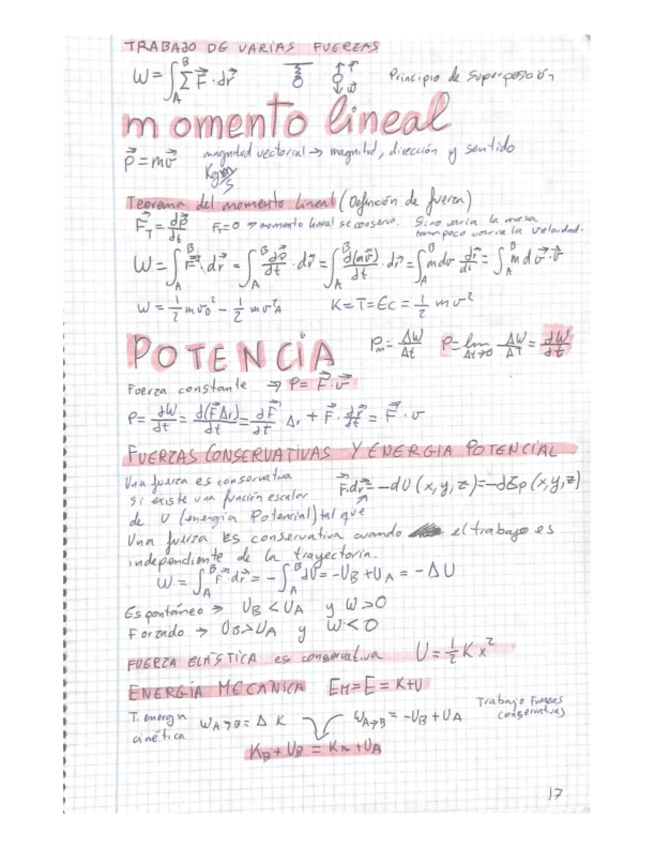 TRABAJO DE VARIAS FUERZAS
W = ∫_A^B Σ F⃗ · dr⃗   Principio de superposición
momento lineal
p⃗ = mv⃗   magnitud vectorial → magnitud, dirección y sentido
Kg m/s
Teorema del momento lineal (Definición de fuerza)
F⃗_T = dp⃗/dt   F_T = 0 → momento lineal se conserva. Si no varía la masa
tampoco varía la velocidad.
W = ∫_A^B F⃗ · dr⃗ = ∫_A^B dp⃗/dt · dr⃗ = ∫_A^B d(mv⃗)/dt · dr⃗ = ∫_A^B m dv · dr⃗/dt = ∫_A^B m dv⃗ · v⃗
W = 1/2 mv_B² - 1/2 mv_A²   K = T = Ec = 1/2 mv²
POTENCIA   P_m = ΔW/Δt   P = lim_{Δt→0} ΔW/ΔT = dW/dt
Fuerza constante → P = F⃗ · v⃗
P = dW/dt = d(F⃗Δr)/dt = dF⃗/dt Δr + F⃗ · dr⃗/dt = F⃗ · v
FUERZAS CONSERVATIVAS Y ENERGIA POTENCIAL
Una fuerza es conservativa
si existe una función escalar   F⃗·dr⃗ = -dU(x,y,z) = -dEp(x,y,z)
de U (energía Potencial) tal que
Una fuerza es conservativa cuando el trabajo es
independiente de la trayectoria.
W = ∫_A^B F⃗ · dr⃗ = -∫_A^B dU = -U_B + U_A = -ΔU
Espontáneo → U_B < U_A y W > 0
Forzado → U_B > U_A y W < 0
FUERZA ELÁSTICA es conservativa   U = 1/2 K x²
ENERGÍA MECÁNICA   EM = E = K+U
T. energía   W_A→B = Δ K   W_A→B = -U_B + U_A   Trabajo Fuerzas
cinética   conservativas
K_B + U_B = K_A + U_A
17